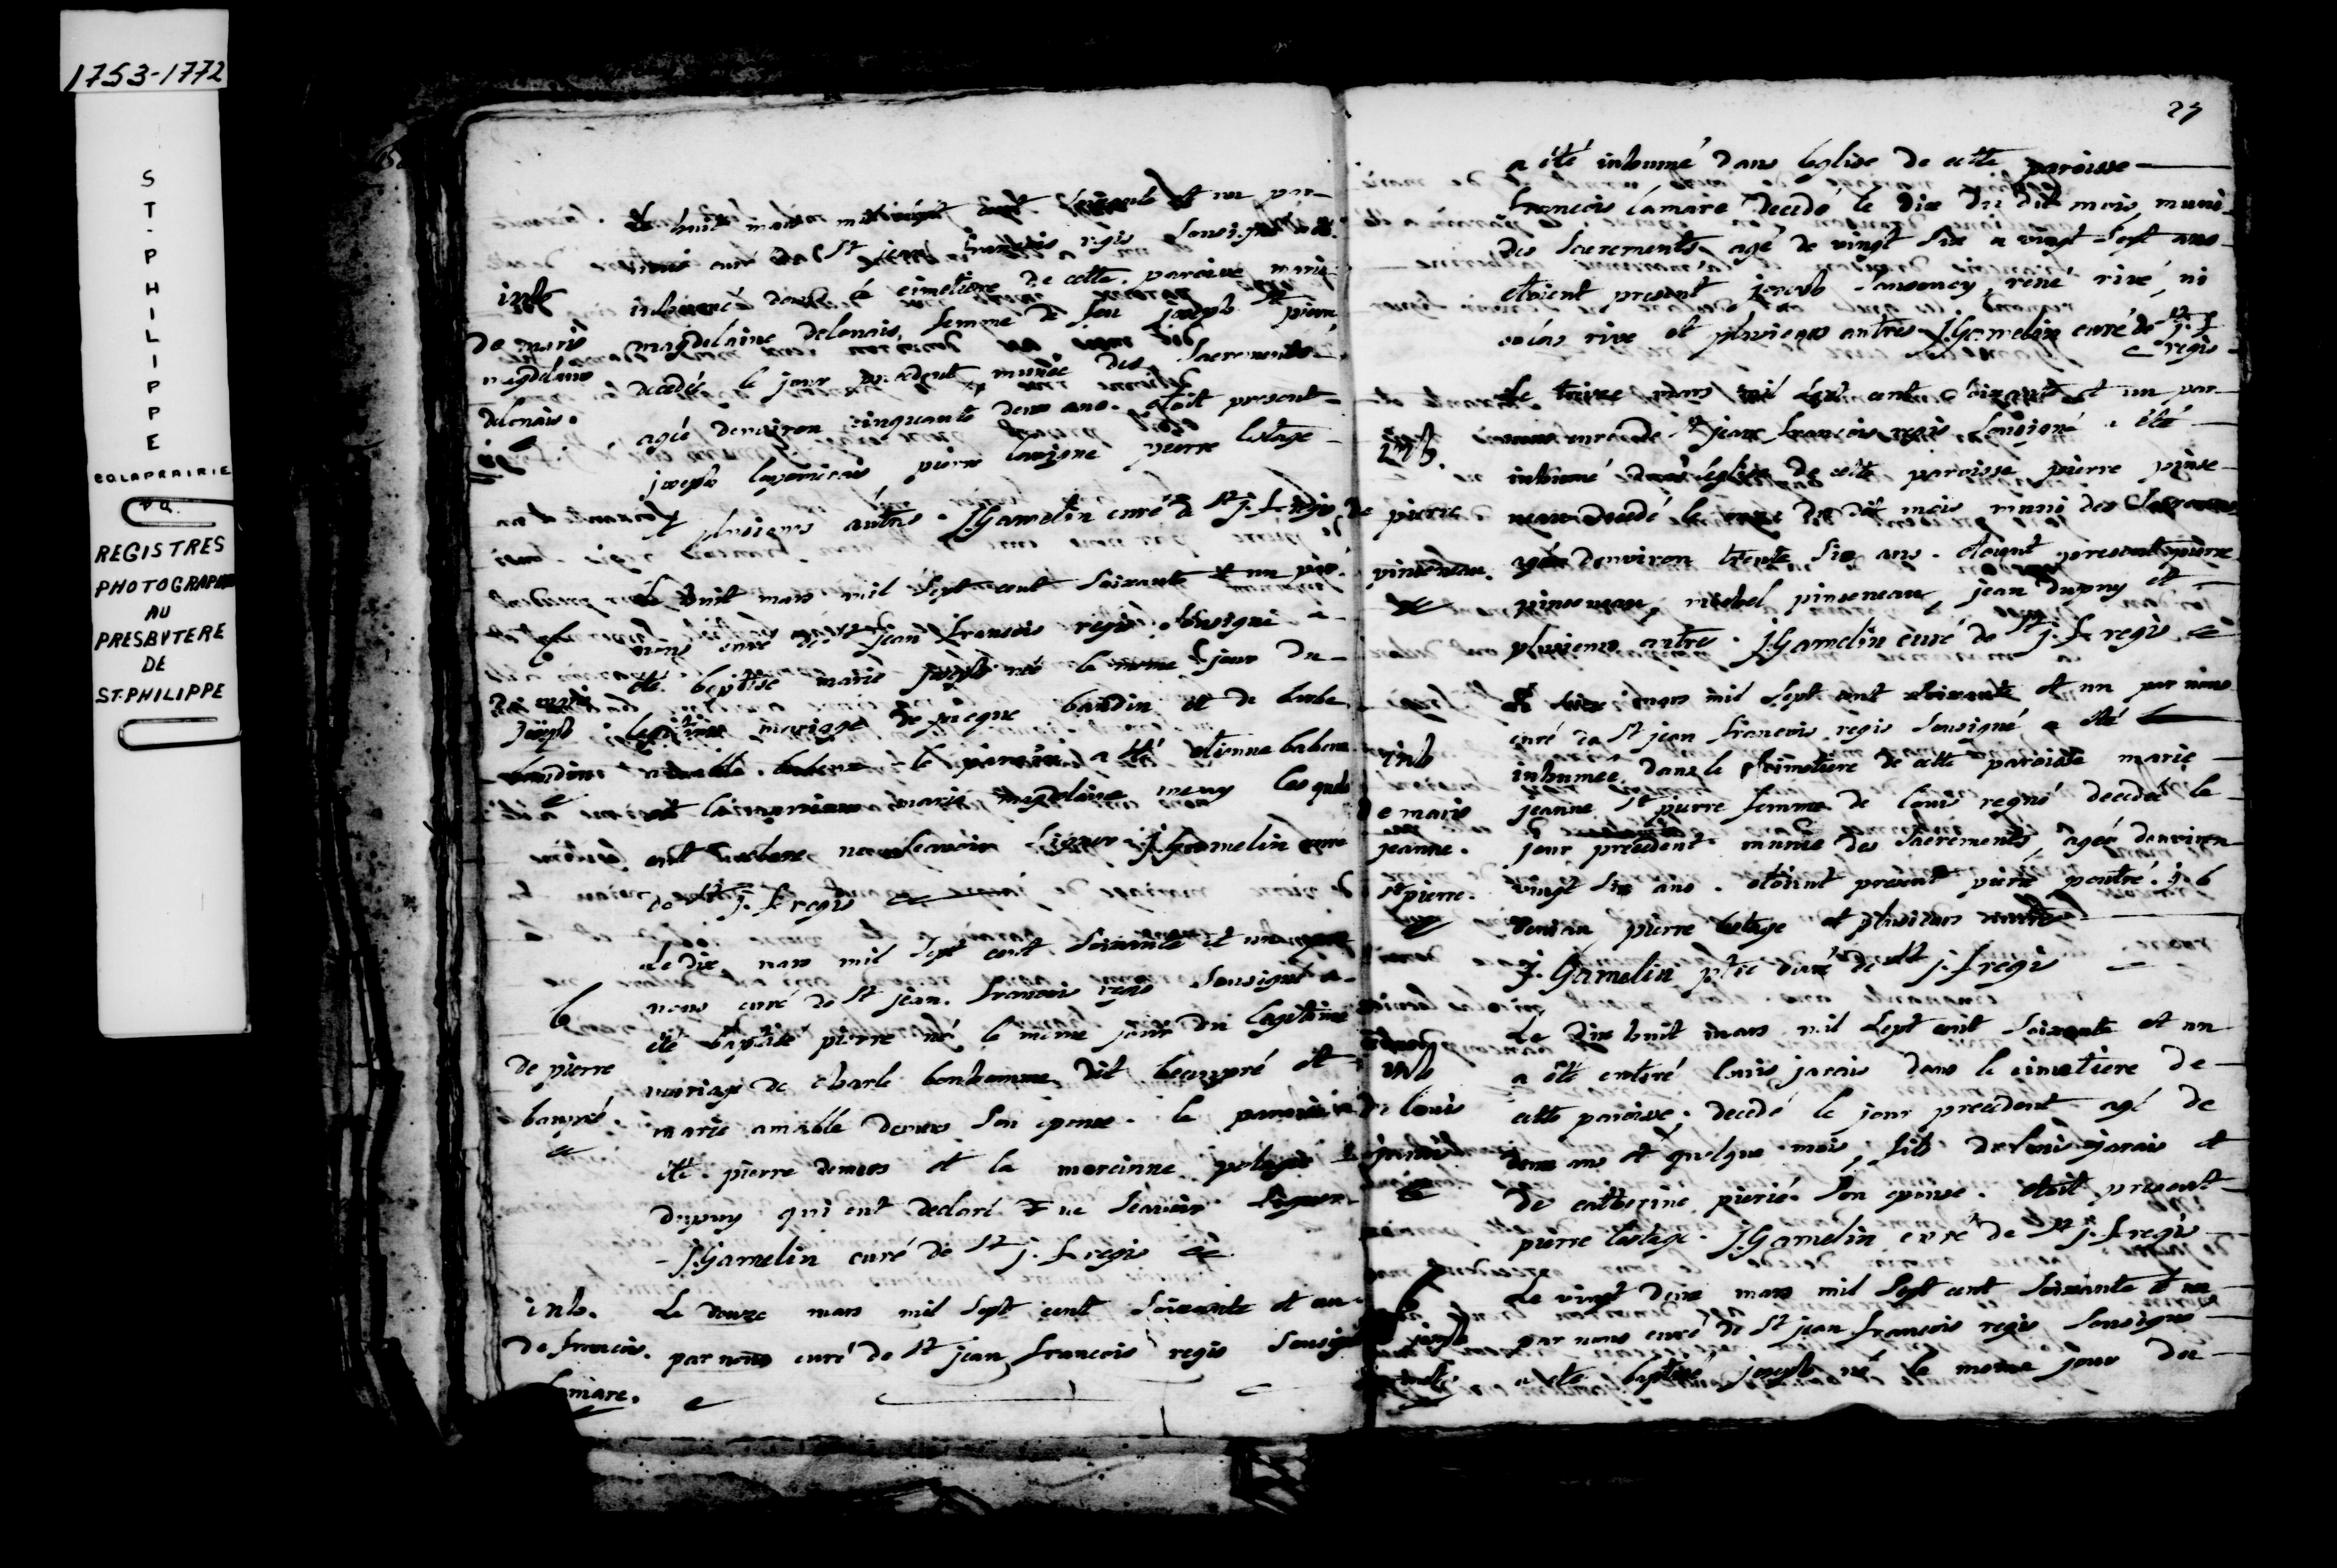 1753-1772
ST-PHILIPPE
COLAPRAIRIE
REGISTRES
PHOTOGRAPHIÉ
AU
PRESBYTERE
DE
ST-PHILIPPE
Le huit mars mil sept cent soixante et un par
nous curé de St jean francois regis sousigné a été
inhumée dans le cimetiere de cette paroisse marie
magdelaine delonais, femme de feu joseph
decedée le jour precedent munie des sacrements
agée denviron cinquante deux ans. etoit present
joseph pierre pierre lestage
et plusieurs autres. J. Gamelin curé de St j. f. regis
inh
de marie
magdelaine
delonais.
Le huit mars mil sept cent soixante et un par
nous curé de St jean francois regis sousigné a
été baptisé marie joseph né le meme jour du
legitime mariage de jacque baudin et de barbe
le parain a été etienne babeu
et la maraine marie magdelaine meny lesquels
ont declaré ne scavoir signer J. Gamelin curé
de St j. f. regis
b
de marie
joseph
baudin
Le dix mars mil sept cent soixante et un par
nous curé de St jean francois regis sousigné a
été baptisé pierre né le meme jour du legitime
mariage de charle bonhomme dit beaupré et
marie amable demers son epouse. le parain a
été pierre demers et la mareinne
dupuy qui ont declaré ne scavoir signer
J. Gamelin curé de St j. f. regis
b
de pierre
baupré.
inh.
de francois.
lamare.
Le douze mars mil sept cent soixante et un
par nous curé de St jean francois regis sousigné
a été inhumé dans leglise de cette paroisse
francois lamare decedé le dix du dit mois muni
des sacrements agé de vingt six a vingt sept ans
etoient present joseph rené rivé, ni
colas rivé et plusieurs autres J. Gamelin curé de St j. f
regis
Le treize mars mil sept cent soixante et un par
nous curé de St jean francois regis sousigné a été
inhumé dans leglise de cette paroisse pierre pinse
neau decedé le onze du dit mois muni des sacrements
agée denviron trente six ans. etoient present pierre
pinseneau, michel pinseneau, jean dupuy et
plusieurs autres. J. Gamelin curé de St j. f. regis
inh.
de pierre
pinseneau.
Le mars mil sept cent soixante et un par nous
curé de St jean francois regis sousigné a été
inhumée dans le cimetiere de cette paroisse marie
jeanne St pierre femme de louis regné decedée le
jour precedent munie des sacrements, agée denviron
vingt six ans. etoient present pierre
pierre lestage et plusieurs autres
J. Gamelin ptre curé de St j. f regis
inh
de marie
jeanne.
St pierre.
Le dix huit mars mil sept cent soixante et un
a été enteré louis jarais dans le cimetiere de
cette paroisse; decedé le jour precedent agé de
deux ans et quelque mois, fils de louis jarais et
de catherine pierié son epouse. etoit present
pierre lestage. J. Gamelin curé de St j. f regis
inh
de louis
jarais
Le vingt deux mars mil sept cent soixante et un
par nous curé de St jean francois regis sousigné
a été baptisé joseph né le meme jour du
joseph